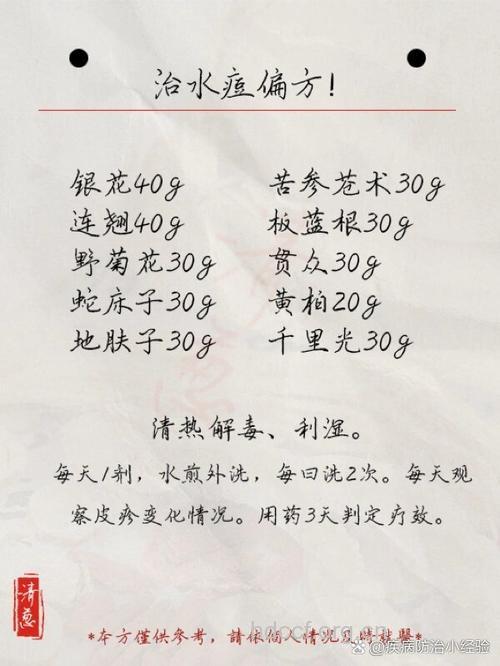 治水痘偏方!
银花40g 苦参苍术30g
连翘40g 板蓝根30g
野菊花30g 贯众30g
蛇床子30g 黄柏20g
地肤子30g 千里光30g
清热解毒、利湿。
每天1剂，水煎外洗，每日洗2次。每天观
察皮疹变化情况。用药3天判定疗效。
清葱
*本方僅供參考，請依個人情況及時就醫*
@疾病防治小经验